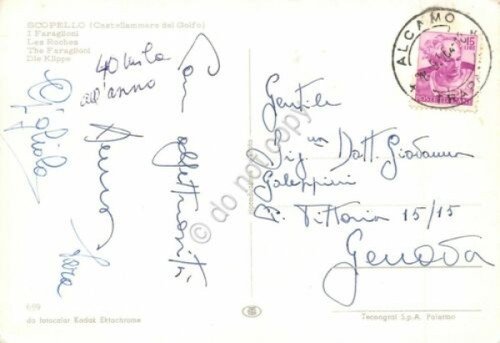 SCOPELLO (Castellammare del Golfo)
I Faraglioni
Les Roches
The Faraglioni
Die Klippe
40 mila
all'anno
Con affettuosità
Gigliola
Sara
ALCAMO
TRAPANI
15
LIRE
Gentile
Sig. Dott. Giovanna
Galeppini
C. Vittoria 15/15
Genova
699
da fotocolor Kodak Ektachrome
Tecnograf S.p.A. Palermo
do not copy